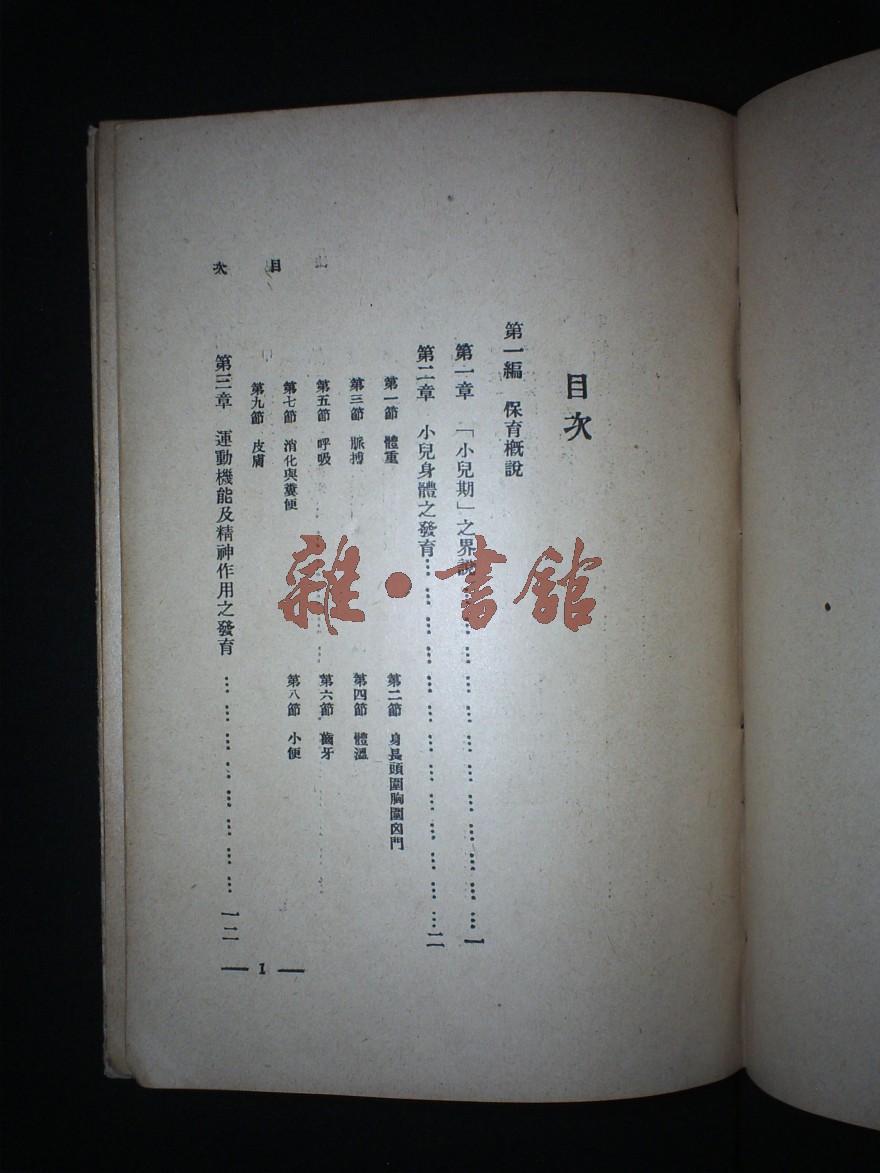 目次
第一編 保育概說
第一章 「小兒期」之界說……………………一
第二章 小兒身體之發育……………………二
第一節 體重
第二節 身長頭圍胸圍囟門
第三節 脈搏
第四節 體溫
第五節 呼吸
第六節 齒牙
第七節 消化與糞便
第八節 小便
第九節 皮膚
第三章 運動機能及精神作用之發育……………………一二
目次
— 1 —
雜·書館